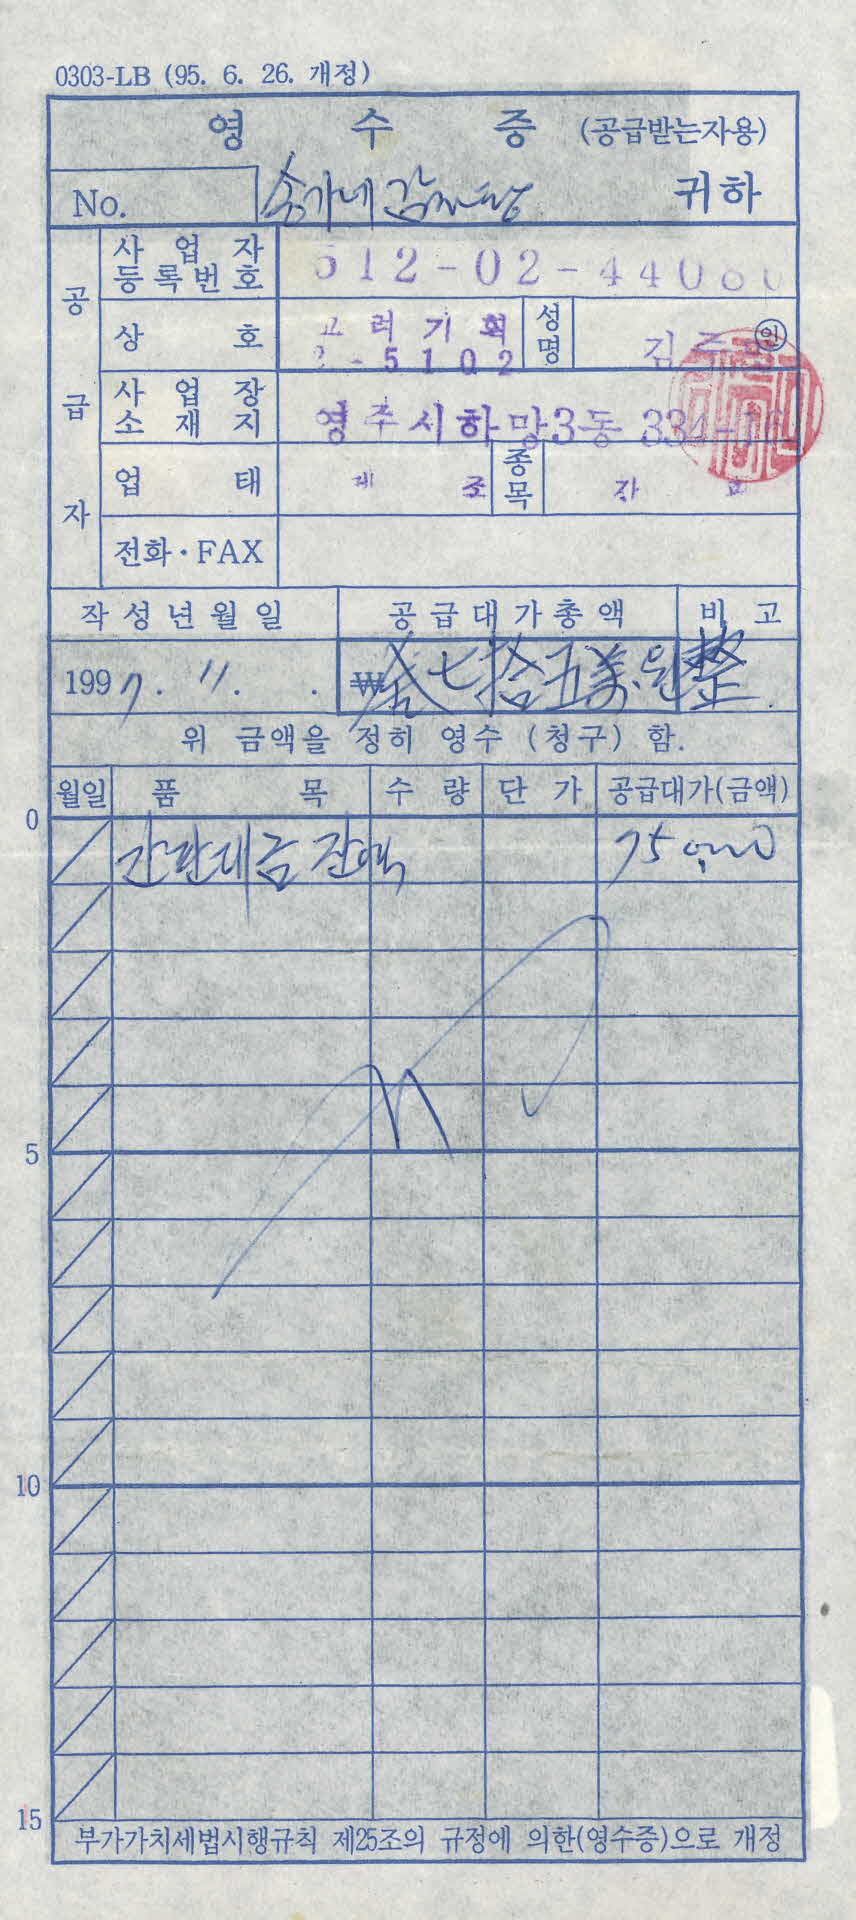 0303-LB (95. 6. 26. 개정)
영 수 증 (공급받는자용)
No. 송가네 감자탕 귀하
공급자
사업자등록번호 512-02-44080
상호 고려기획 2-5102 성명 김주 인
사업장소재지 영주시하망3동 334-
업태 제조 종목 간판
전화·FAX
작성년월일 공급대가총액 비고
1997. 11. . ₩金七拾五萬원整.
위 금액을 정히 영수 (청구) 함.
월일 품목 수량 단가 공급대가(금액)
0
간판대금 잔액 750,000
5
10
15
부가가치세법시행규칙 제25조의 규정에 의한(영수증)으로 개정